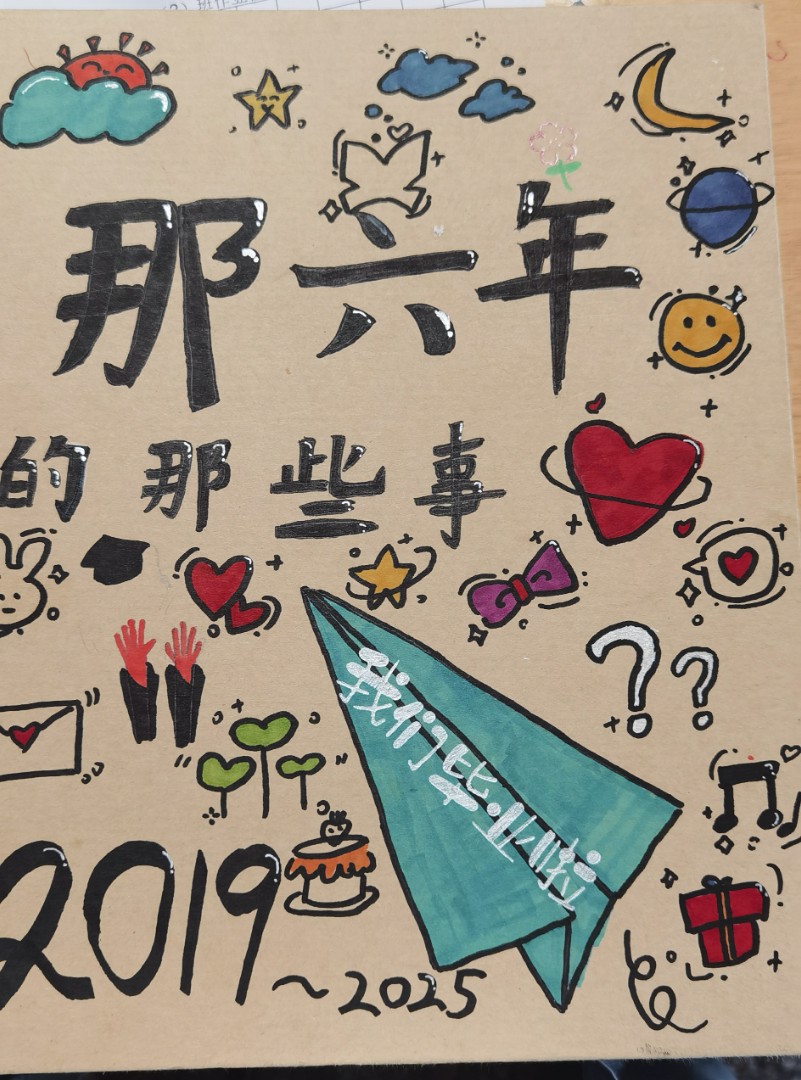 那六年
的那些事
我们毕业啦
2019
～2025